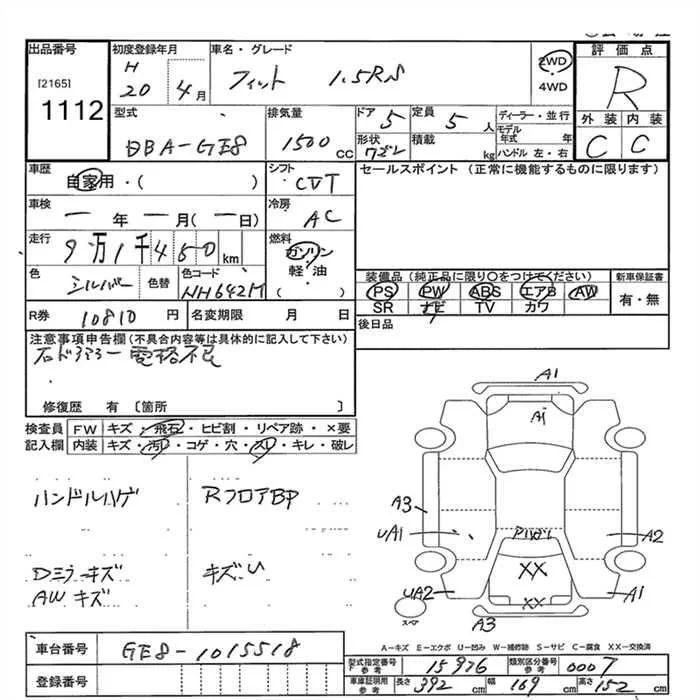 出品番号 初度登録年月 車名・グレード 評価点
[2165] 1112
H 20 年 4月 フィット 1.5RS 2WD ・ 4WD R
型式 排気量 ドア 定員 ディーラー・並行 外装 内装
DBA-GE8 1500 CC 5 5 人 モデル年式 年 C C
形状 積載 kg ハンドル 左・右
車歴 シフト セールスポイント (正常に機能するものに限ります)
自家用・( ) CVT
車検 冷房
一年 一月 (一日) AC
走行 燃料
9万1千450 km ガソリン・軽・油 ( )
色 色替 色コード 装備品 (純正品に限り○をつけてください) 新車保証書
シルバー NH642M PS PW ABS エアB AW 有・無
SR ナビ TV カワ
R券 10810 円 名変期限 月 日 後日品
注意事項申告欄 (不具合内容等は具体的に記入して下さい)
電格不良
修復歴 有 〔箇所 〕
検査員 FW キズ・飛石・ヒビ割・リペア跡・×要
記入欄 内装 キズ・汚レ・コゲ・穴・スレ・キレ・破レ
ハンドルハゲ RフロアBP
Dミラーキズ キズU
AWキズ
A1
A1
A3
UA1 A2
XX
UA2 XX A1
スペア A3
A－キズ E－エクボ U－凹み W－補修跡 S－サビ C－腐食 XX－交換済
車台番号 GE8-1015518
登録番号
型式指定番号 参考 15976 類別区分番号 参考 0007
車庫証明用 参考 長さ 392 cm 幅 169 cm 高さ 152 cm